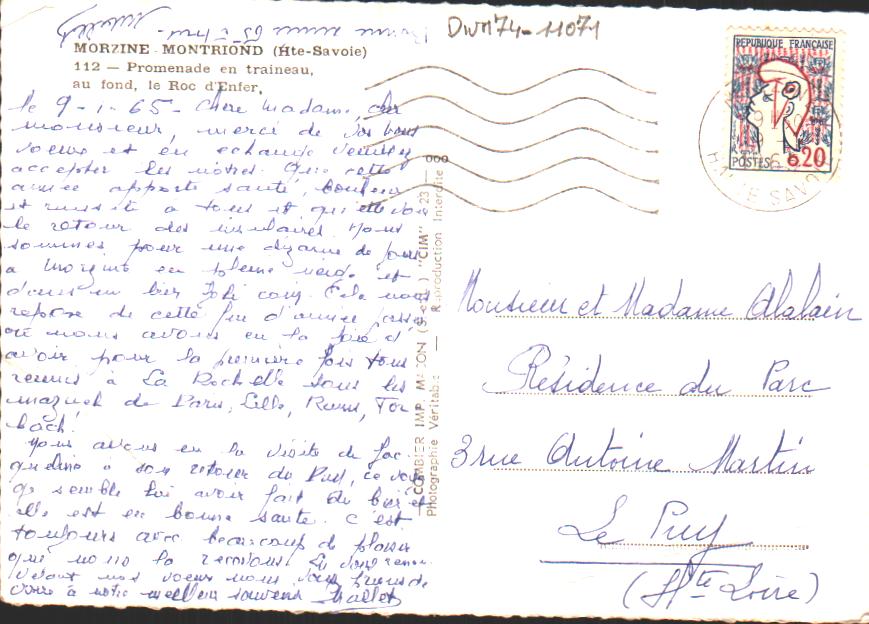 Bonne année 65 à tous -
DWM74-11071
MORZINE - MONTRIOND (Hte-Savoie)
112 — Promenade en traineau,
au fond, le Roc d'Enfer,
le 9-1-65 - Chère Madame, cher
monsieur, merci de vos bons
voeux et en échange veuillez
accepter les nôtres. Que cette
année apporte santé, bonheur
et réussite à tous et qu'elle voie
le retour des insulaires. Nous
sommes pour une dizaine de jours
à Morzine en pleine neige et
dans un bien joli coin. Cela nous
repose de cette fin d'année
où nous avons eu la joie d'
avoir pour la première fois tous
réunis à La Rochelle tous les
de Paris, Lille, Reims, For
bach.
Nous avons eu la visite de Jac
queline à son retour du Puy, ce
qui semble lui avoir fait du bien et
elle est en bonne santé. C'est
toujours avec beaucoup de plaisir
que nous la revoyons. En vous renou
velant nos voeux nous vous prions de
croire à notre meilleur souvenir Mallet
COMBIER IMP. MACON (S.-et-L.) "CIM"
Photographie Véritable — Reproduction Interdite
23 — 000
REPUBLIQUE FRANÇAISE
POSTES 0.20
HAUTE SAVOIE
Monsieur et Madame Alalain
Résidence du Parc
3 rue Antoine Martin
Le Puy
(Hte Loire)